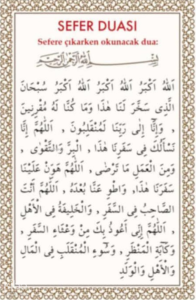 SEFER DUASI
Sefere çıkarken okunacak dua:
بِسْمِ اللهِ الرَّحْمٰنِ الرَّحِيمِ
اَللهُ اَكْبَرُ اَللهُ اَكْبَرُ اَللهُ اَكْبَرُ سُبْحَانَ
الَّذِى سَخَّرَ لَنَا هٰذَا وَمَا كُنَّا لَهُ مُقْرِنِينَ
، وَاِنَّا اِلٰى رَبِّنَا لَمُنْقَلِبُونَ ، اَللّٰهُمَّ اِنَّا
نَسْأَلُكَ فِى سَفَرِنَا هٰذَا ، الْبِرَّ وَالتَّقْوٰى ،
وَمِنَ الْعَمَلِ مَا تَرْضٰى ، اَللّٰهُمَّ هَوِّنْ عَلَيْنَا
سَفَرَنَا هٰذَا ، وَاطْوِ عَنَّا بُعْدَهُ ، اَللّٰهُمَّ اَنْتَ
الصَّاحِبُ فِى السَّفَرِ ، وَالْخَلِيفَةُ فِى الْاَهْلِ
، اَللّٰهُمَّ اِنِّى اَعُوذُ بِكَ مِنْ وَعْثَاءِ السَّفَرِ ،
وَكَآبَةِ الْمَنْظَرِ ، وَسُوءِ الْمُنْقَلَبِ فِى الْمَالِ
وَالْاَهْلِ وَالْوَلَدِ